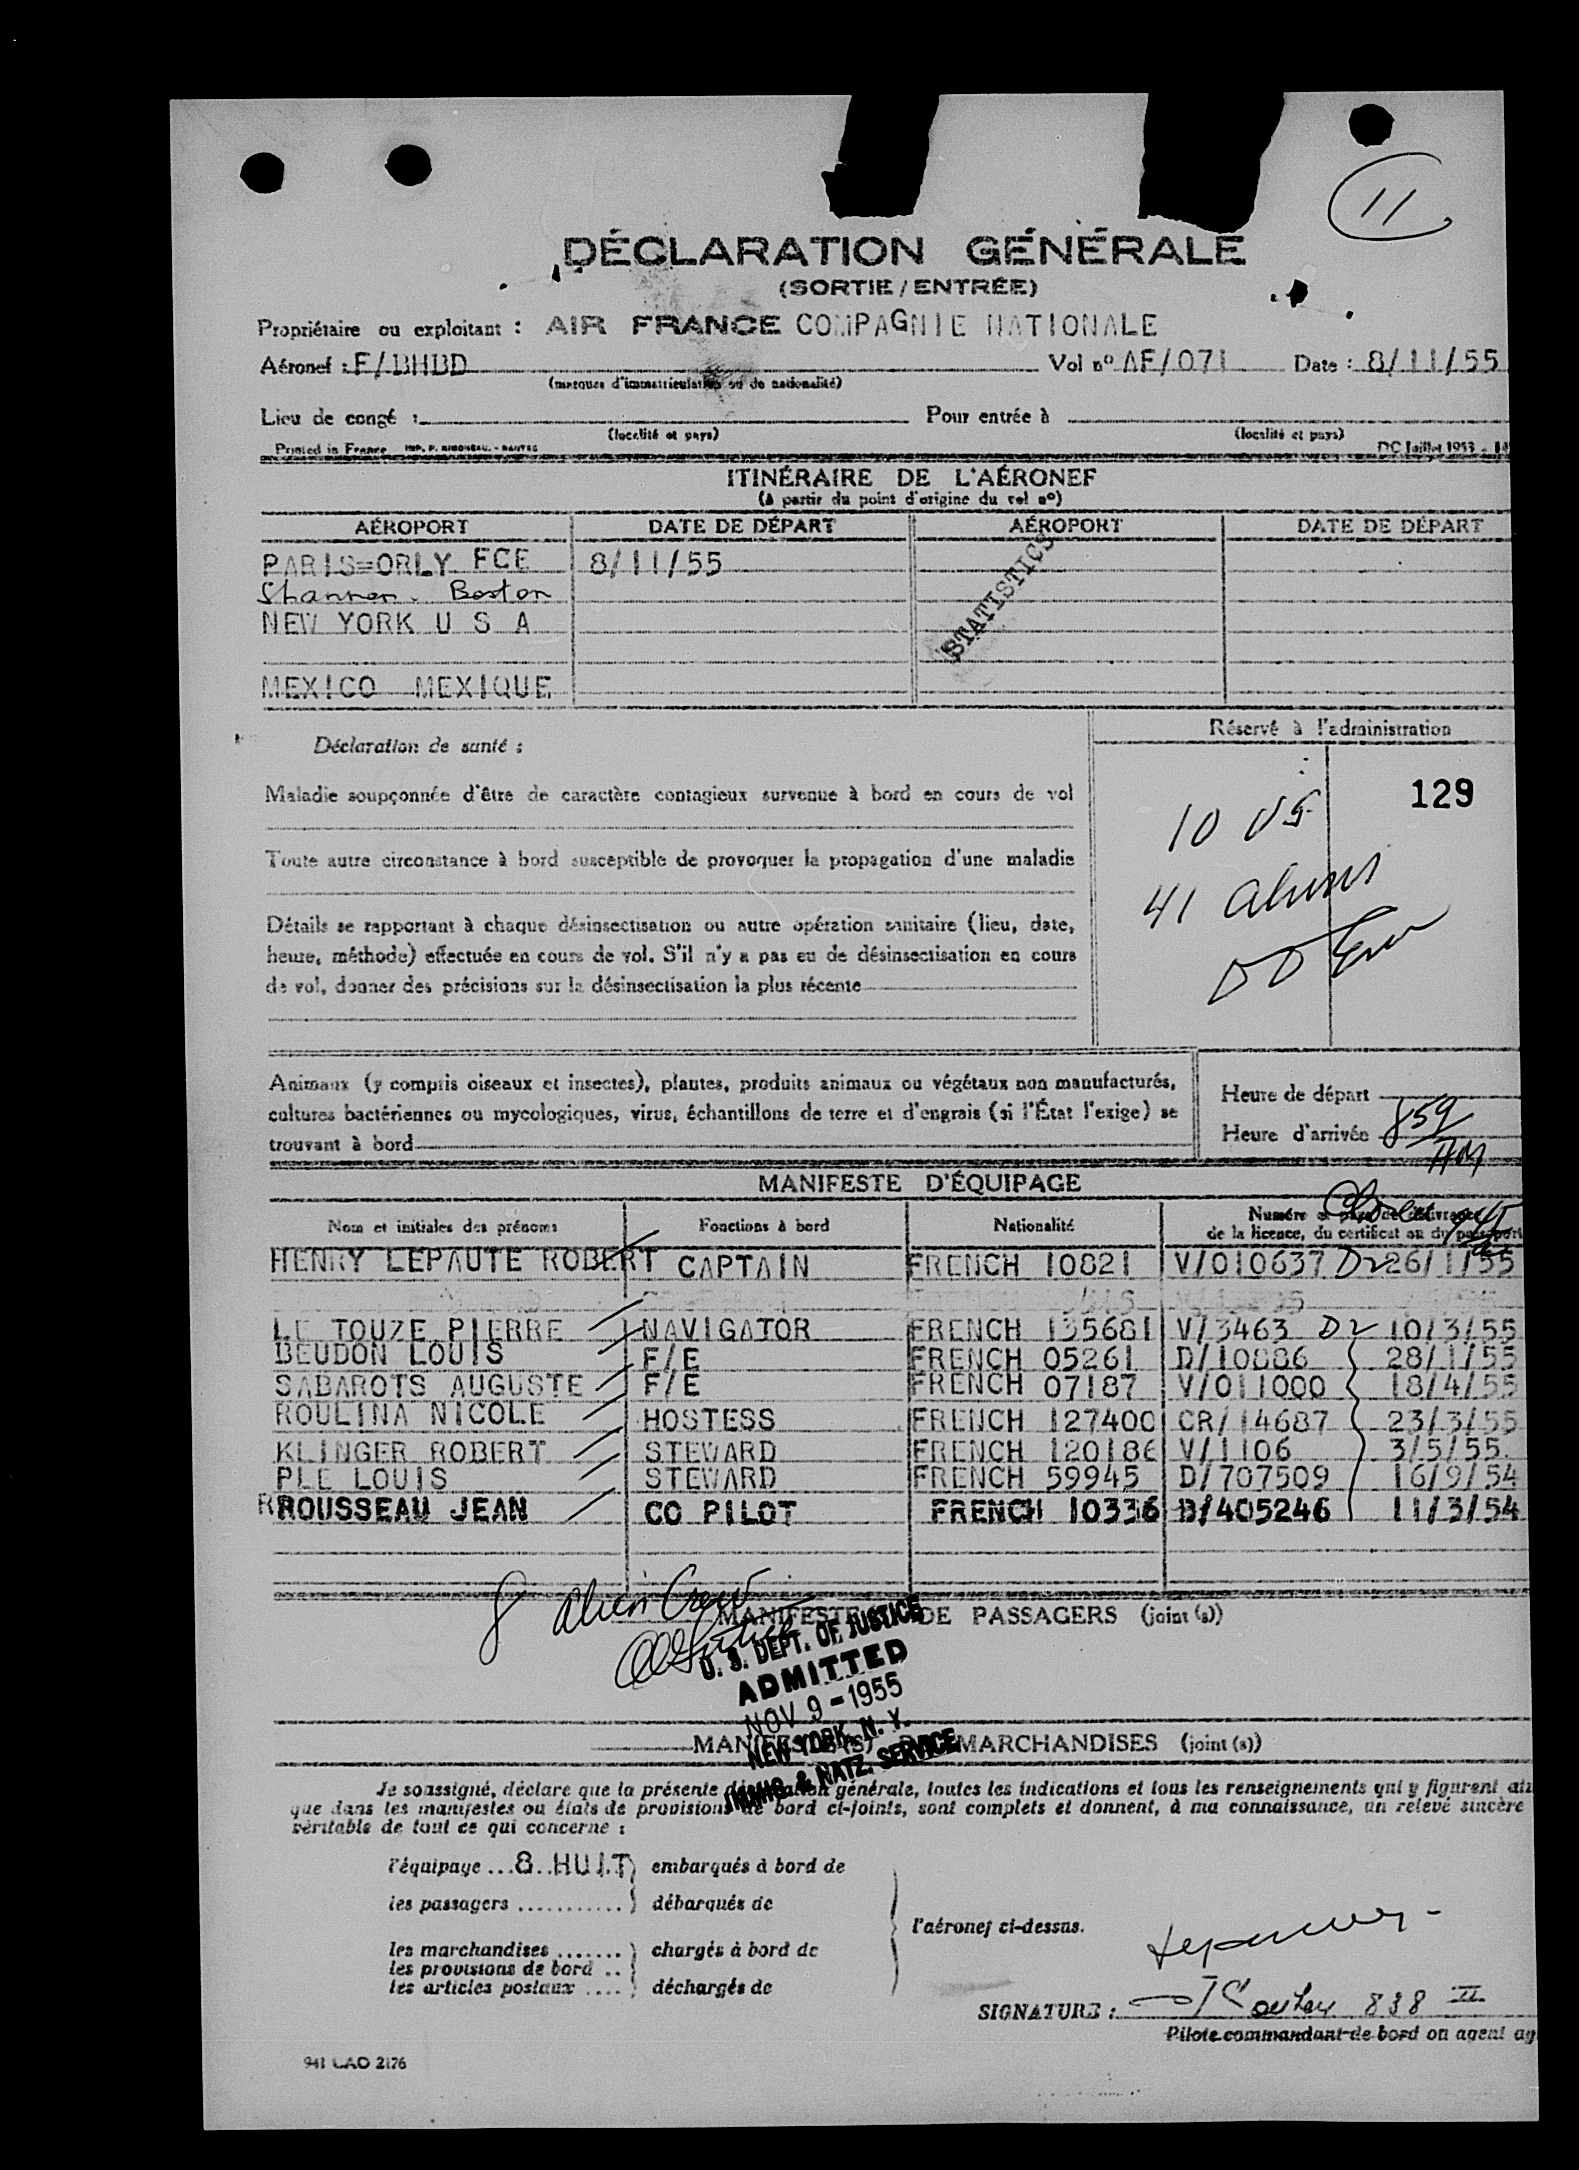 11
DÉCLARATION GÉNÉRALE
(SORTIE / ENTRÉE)
Propriétaire ou exploitant : AIR FRANCE COMPAGNIE NATIONALE
Aéronef : F/BHBD Vol nº AF/071 Date : 8/11/55
(marques d'immatriculation ou de nationalité)
Lieu de congé : Pour entrée à
(localité et pays) (localité et pays)
Printed in France DC Juillet 1953
ITINÉRAIRE DE L'AÉRONEF
(à partir du point d'origine du vol nº)
AÉROPORT DATE DE DÉPART AÉROPORT DATE DE DÉPART
PARIS=ORLY FCE 8/11/55
Shannon. Boston
NEW YORK U S A
STATISTICS
MEXICO MEXIQUE
Réservé à l'administration
Déclaration de santé :
129
Maladie soupçonnée d'être de caractère contagieux survenue à bord en cours de vol
10 US
Toute autre circonstance à bord susceptible de provoquer la propagation d'une maladie
41 Aliens
Détails se rapportant à chaque désinsectisation ou autre opération sanitaire (lieu, date,
heure, méthode) effectuée en cours de vol. S'il n'y a pas eu de désinsectisation en cours
de vol, donner des précisions sur la désinsectisation la plus récente
Animaux (y compris oiseaux et insectes), plantes, produits animaux ou végétaux non manufacturés,
cultures bactériennes ou mycologiques, virus, échantillons de terre et d'engrais (si l'État l'exige) se
trouvant à bord
Heure de départ
Heure d'arrivée 859
AM
MANIFESTE D'ÉQUIPAGE
Nom et initiales des prénoms Fonctions à bord Nationalité Numéro et pays de délivrance
de la licence, du certificat ou du passeport
HENRY LEPAUTE ROBERT CAPTAIN FRENCH 10821 V/010637 D2 26/1/55
LE TOUZE PIERRE NAVIGATOR FRENCH 135681 V/3463 D2 10/3/55
BEUDON LOUIS F/E FRENCH 05261 D/10886 28/1/55
SABAROTS AUGUSTE F/E FRENCH 07187 V/011000 18/4/55
ROULINA NICOLE HOSTESS FRENCH 127400 CR/14687 23/3/55
KLINGER ROBERT STEWARD FRENCH 120186 V/1106 3/5/55.
PLE LOUIS STEWARD FRENCH 59945 D/707509 16/9/54
ROUSSEAU JEAN CO PILOT FRENCH 10336 B/405246 11/3/54
8 Alien Crew
MANIFESTE DE PASSAGERS (joint (s))
U. S. DEPT. OF JUSTICE
ADMITTED
NOV 9 - 1955
NEW YORK, N. Y.
IMMIG. & NATZ. SERVICE
MANIFESTE(S) DE MARCHANDISES (joint (s))
Je soussigné, déclare que la présente déclaration générale, toutes les indications et tous les renseignements qui y figurent
que dans les manifestes ou états de provisions de bord ci-joints, sont complets et donnent, à ma connaissance, un relevé sincère
véritable de tout ce qui concerne :
l'équipage ... 8 HUIT embarqués à bord de
les passagers ........... débarqués de
l'aéronef ci-dessus.
les marchandises ....... chargés à bord de
les provisions de bord ..
les articles postaux .... déchargés de
SIGNATURE : 838 II
Pilote commandant de bord ou agent
941 CAO 2176